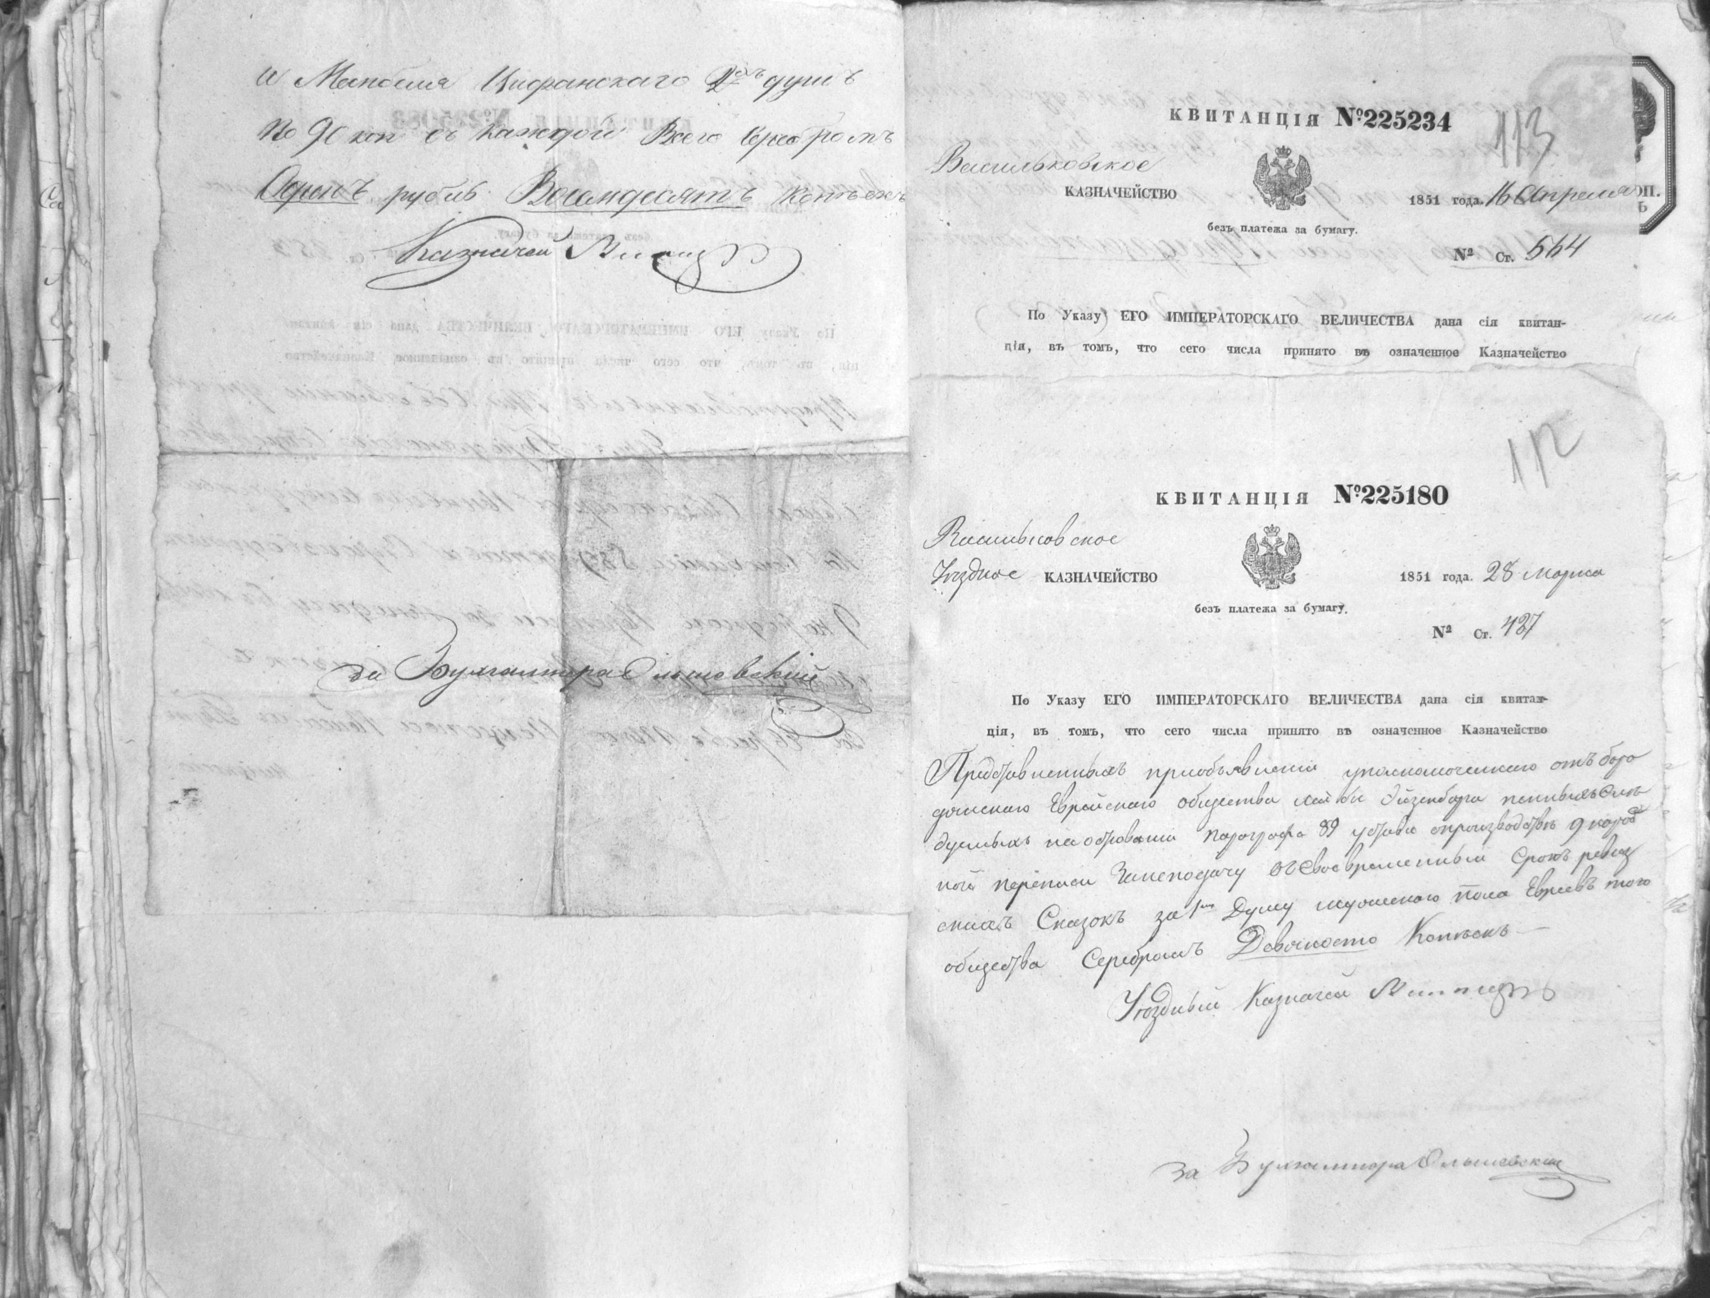 и Мапошля Цифранскаго 2хъ душъ
по 90 коп съ каждой Всего серебромъ
Одинъ рубль Восемдесятъ копѣекъ
Казначей
за Бухгалтера Ольшовскій
КВИТАНЦІЯ №225234
113
Васильковское
КАЗНАЧЕЙСТВО
1851 года. 16 Апреля
безъ платежа за бумагу.
№ Ст. 564
По Указу ЕГО ИМПЕРАТОРСКАГО ВЕЛИЧЕСТВА дана сія квитан-
ція, въ томъ, что сего числа принято въ означенное Казначейство
112
КВИТАНЦІЯ №225180
Васильковское
Уѣздное КАЗНАЧЕЙСТВО
1851 года. 28 Марта
безъ платежа за бумагу.
№ Ст. 427
По Указу ЕГО ИМПЕРАТОРСКАГО ВЕЛИЧЕСТВА дана сія квитан-
ція, въ томъ, что сего числа принято въ означенное Казначейство
Представленныхъ приобъявленіи уполномоченнаго отъ
Еврейскаго общества Эйзенберга
на основаніи параграфа 89 устава опроизводствѣ 9 народ
ной переписи Занеподачу въ Своевременный Срокъ ревиз
скихъ Сказокъ за 1ну Душу мужескаго пола Евреевъ того
общества Серебромъ Девяносто Копѣекъ
Уѣздный Казначей
за Бухгалтера Ольшевскій